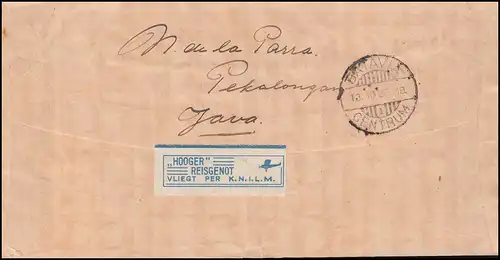 M. de la Parra.
Pekalongan
Java.
BATAVIA
CENTRUM
„HOOGER"
REISGENOT
VLIEGT PER K.N.I.L.M.